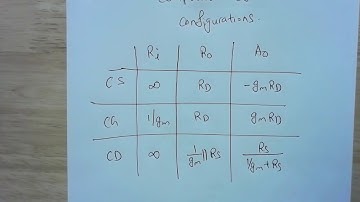 configurations.
Ri Ro Ao
CS ∞ RD -gmRD
CG 1/gm RD gmRD
CD ∞ 1/gm || Rs Rs/(1/gm + Rs)